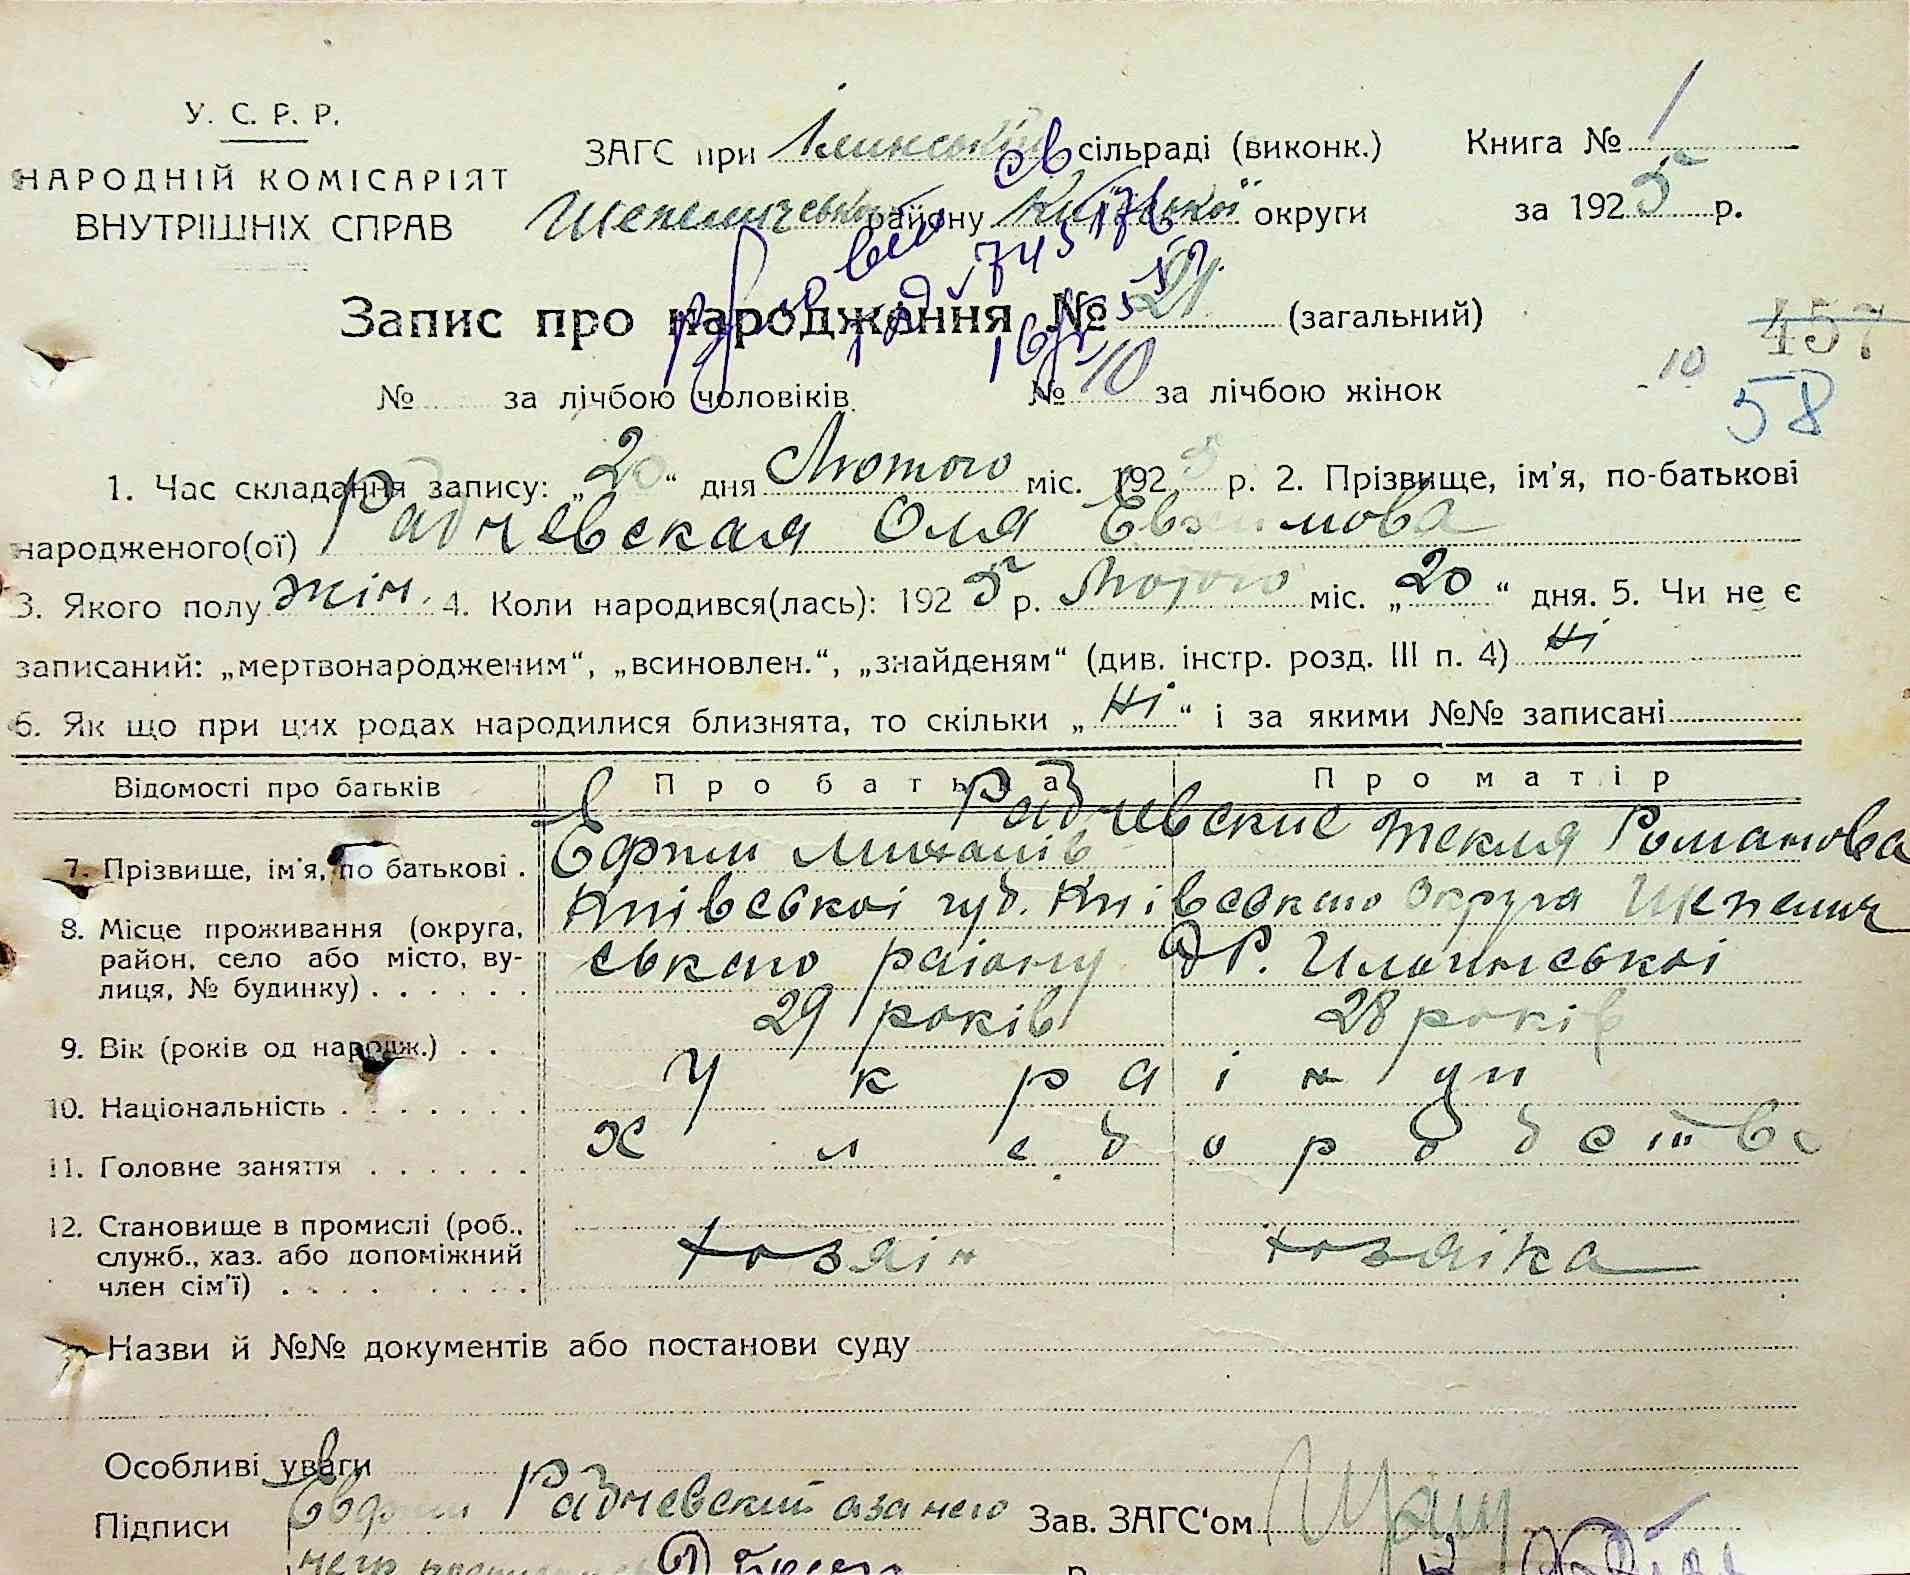 У. С. Р. Р.
НАРОДНІЙ КОМІСАРІЯТ
ВНУТРІШНІХ СПРАВ
ЗАГС при Ілинській сільраді (виконк.)
Шепеличського району Київської округи
Книга № 1
за 1925 р.
Запис про народження № 21 (загальний)
№ за лічбою чоловіків № 10 за лічбою жінок
457
10
58
1. Час складання запису: „20“ дня Лютого міс. 1925 р. 2. Прізвище, ім'я, по-батькові
народженого(ої) Радчевская Оля Евхимова
3. Якого полу жін. 4. Коли народився(лась): 1925 р. Лютого міс. „20“ дня. 5. Чи не є
записаний: „мертвонародженим“, „всиновлен.“, „знайденям“ (див. інстр. розд. III п. 4) Ні
6. Як що при цих родах народилися близнята, то скільки „Ні“ і за якими №№ записані
Відомості про батьків Про батька Про матір
Радчевские
7. Прізвище, ім'я, по батькові . Ефим Михалів Текля Романова
8. Місце проживання (округа, район, село або місто, вулиця, № будинку) . . . . . .
Київськоі губ. Киівського округа Шепелич
ського раіону Илинськоі
9. Вік (років од народж.) . . 29 років 28 років
10. Національність . . . . . . . Украінци
11. Головне заняття . . . . . . Хлеборобство
12. Становище в промислі (роб., служб., хаз. або допоміжний член сім'ї) . . . . . . . .
хозяін хозяіка
Назви й №№ документів або постанови суду
Особливі уваги
Підписи Евфим Радчевский а за него
Зав. ЗАГС'ом